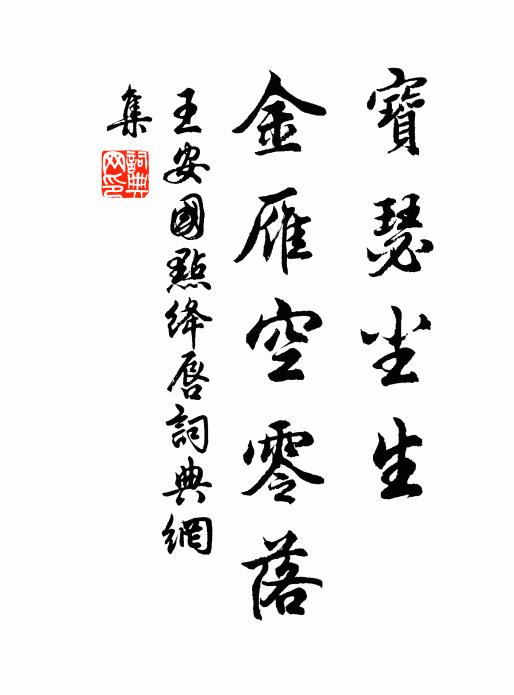 寶瑟尘生
金雁空零落
王安國點绛唇詞典網
集
詞典
网印